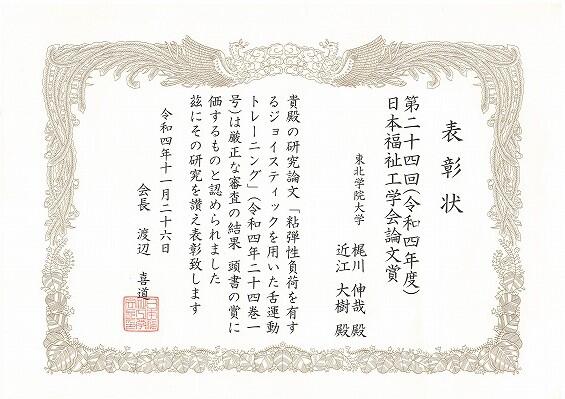 表彰状
第二十四回(令和四年度)
日本福祉工学会論文賞
東北学院大学 梶川 伸哉 殿
近江 大樹 殿
貴殿の研究論文「粘弾性負荷を有す
るジョイスティックを用いた舌運動
トレーニング」(令和四年二十四巻一
号)は厳正な審査の結果 頭書の賞に
価するものと認められました
茲にその研究を讃え表彰致します
令和四年十一月二十六日
会長 渡辺 喜道